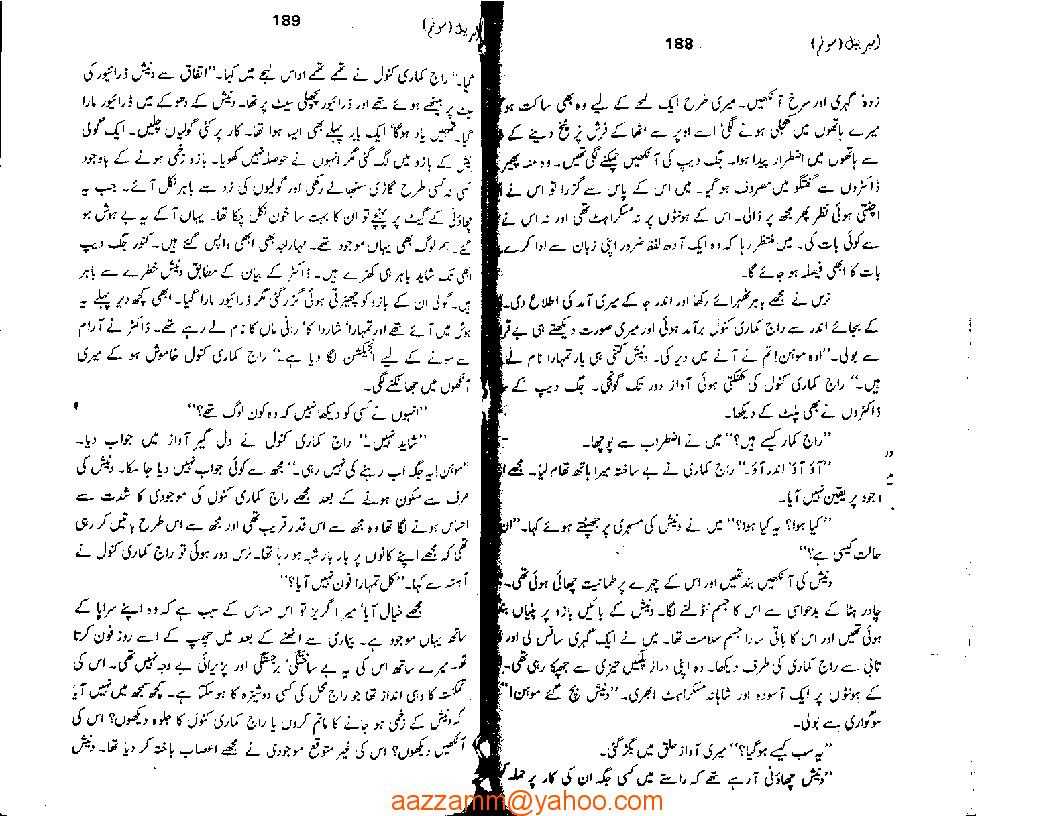 188
امربیل (سوئم)
زدہ، گہری اور سرخ آنکھیں۔ میری طرح ایک لمحے کے لیے وہ بھی ساکت ہو
میرے ہاتھوں میں کھجلی ہونے لگی‘ اسے اوپر سے اٹھا کے فرش پر پٹخ دینے کے
سے ہاتھوں میں اضطرار پیدا ہوا۔ جگ دیپ کی آنکھیں چپکنے لگی تھیں۔ وہ منہ پھیر
ڈاکٹروں سے گفتگو میں مصروف ہوگیا۔ میں اس کے پاس سے گزرا تو اس نے
اچٹتی ہوئی نظر پھر مجھ پر ڈالی۔ اس کے ہونٹوں پر نہ مسکراہٹ تھی اور نہ اس نے
سے کوئی بات کی۔ میں منتظر رہا کہ وہ ایک آدھ لفظ ضرور اپنی زبان سے ادا کرے
بات کا ابھی فیصلہ ہو جائے گا۔
نرس نے مجھے باہر ٹھہرائے رکھا اور اندر جا کے میری آمد کی اطلاع دی۔
کے بجائے اندر سے راج کماری کنول برآمد ہوئی اور میری صورت دیکھتے ہی بے قرا
سے بولی۔ ”اوہ موہن! تم نے آنے میں دیر کی۔ دنیش کتنی ہی بار تمہارا نام لے
ہیں۔“ راج کماری کنول کی کھنکتی ہوئی آواز دور تک گونجی۔ جگ دیپ کے
ڈاکٹروں نے بھی پلٹ کے دیکھا۔
”راج کمار کیسے ہیں؟“ میں نے اضطراب سے پوچھا۔
”آؤ آؤ‘ اندر آؤ۔“ راج کماری نے بے ساختہ میرا ہاتھ تھام لیا۔ مجھے
وجود پر یقین نہیں آیا۔
”کیا ہوا؟ یہ کیا ہوا؟“ میں نے دنیش کی مسہری پر جھپٹتے ہوئے کہا۔ ”ان
حالت کیسی ہے؟“
دنیش کی آنکھیں بند تھیں اور اس کے چہرے پر طمانیت چھائی ہوئی تھی۔
چادر ہٹا کے بدحواسی سے اس کا جسم ٹٹولنے لگا۔ دنیش کے بائیں بازو پر پٹیاں
ہوئی تھیں اور اس کا باقی سارا جسم سلامت تھا۔ میں نے ایک گہری سانس لی اور
تابی سے راج کماری کی طرف دیکھا۔ وہ اپنی دراز پلکیں تیزی سے جھپکا رہی تھی۔
کے ہونٹوں پر ایک آسودہ اور شاہانہ مسکراہٹ ابھری۔ ”دنیش بچ گئے موہن!“
سوگواری سے بولی۔
”یہ سب کیسے ہوگیا؟“ میری آواز حلق میں بگڑ گئی۔
”دنیش چھاؤنی آ رہے تھے کہ راستے میں کسی جگہ ان کی کار پر حملہ
189
امربیل (سوئم)
گیا۔“ راج کماری کنول نے تھمے تھمے اداس لہجے میں کہا۔ ”اتفاق سے دنیش ڈرائیور کی
سیٹ پر بیٹھے ہوئے تھے اور ڈرائیور پچھلی سیٹ پر تھا۔ دنیش کے دھوکے میں ڈرائیور مارا
گیا۔ تمہیں یاد ہوگا‘ ایک بار پہلے بھی ایسا ہوا تھا۔ کار پر کئی گولیاں چلیں۔ ایک گولی
دنیش کے بازو میں لگ گئی مگر انہوں نے حوصلہ نہیں کھویا۔ بازو زخمی ہونے کے باوجود
کسی نہ کسی طرح گاڑی سنبھالے رکھی اور گولیوں کی زد سے باہر نکل آئے۔ جب یہ
چھاؤنی کے گیٹ پر پہنچے تو ان کا بہت سا خون نکل چکا تھا۔ یہاں آ کے یہ بے ہوش ہو
گئے۔ ہم لوگ بھی یہاں موجود تھے۔ مہاراجہ بھی ابھی واپس گئے ہیں۔ کنور جگ دیپ
ابھی تک شاید باہر ہی کھڑے ہیں۔ ڈاکٹر کے بیان کے مطابق دنیش خطرے سے باہر
ہیں۔ گولی ان کے بازو کو چھیڑتی ہوئی گزر گئی مگر ڈرائیور مارا گیا۔ ابھی کچھ دیر پہلے یہ
ہوش میں آئے تھے اور تمہارا‘ شاردا کا‘ رانی ماں کا نام لے رہے تھے۔ ڈاکٹر نے آرام
سے سونے کے لیے انجیکشن لگا دیا ہے۔“ راج کماری کنول خاموش ہو کے میری
آنکھوں میں جھانکنے لگی۔
”انہوں نے کسی کو دیکھا نہیں کہ وہ کون لوگ تھے؟“
”شاید نہیں۔“ راج کماری کنول نے دل گیر آواز میں جواب دیا۔
”موہن! یہ جگہ اب رہنے کی نہیں رہی۔“ مجھ سے کوئی جواب نہیں دیا جا سکا۔ دنیش کی
طرف سے سکون ہونے کے بعد مجھے راج کماری کنول کی موجودی کا شدت سے
احساس ہونے لگا تھا وہ مجھ سے اس قدر قریب تھی اور مجھ سے اس طرح باتیں کر رہی
تھی کہ مجھے اپنے کانوں پر بار بار شبہ ہو رہا تھا۔ نرس دور ہوئی تو راج کماری کنول نے
آہستہ سے کہا۔ ”کل تمہارا فون نہیں آیا؟“
مجھے خیال آیا‘ میرا گریز تو اس حساس کے سبب ہے کہ وہ اپنے سراپا کے
ساتھ یہاں موجود ہے۔ بیماری سے اٹھنے کے بعد میں چھپ کے اسے روز فون کرتا
تھا۔ میرے ساتھ اس کی یہ بے ساختگی‘ برجستگی اور پذیرائی بے وجہ نہیں تھی۔ اس کی
تمکنت کا وہی انداز تھا جو راج محل کی کسی دوشیزہ کا ہو سکتا ہے۔ کچھ سمجھ میں نہیں آیا
کہ دنیش کے زخمی ہو جانے کا ماتم کروں یا راج کماری کنول کا جلوہ دیکھوں؟ اس کی
آنکھیں دیکھوں؟ اس کی غیر متوقع موجودی نے مجھے اعصاب باختہ کر دیا تھا۔ دنیش
aazzamm@yahoo.com